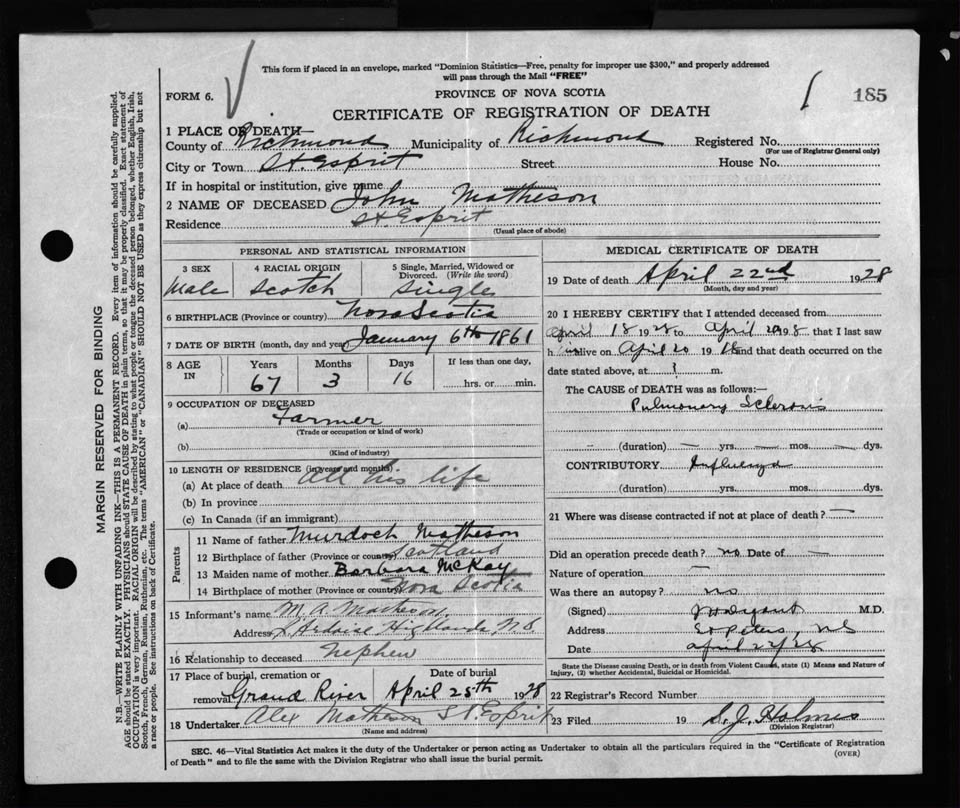 This form if placed in an envelope, marked "Dominion Statistics—Free, penalty for improper use $300," and properly addressed
will pass through the Mail "FREE"
FORM 6.
PROVINCE OF NOVA SCOTIA
185
CERTIFICATE OF REGISTRATION OF DEATH
1 PLACE OF DEATH—
County of Richmond Municipality of Richmond Registered No.
(For use of Registrar General only)
City or Town St. Esprit Street House No.
If in hospital or institution, give name
2 NAME OF DECEASED John Matheson
Residence St. Esprit
(Usual place of abode)
PERSONAL AND STATISTICAL INFORMATION
3 SEX 4 RACIAL ORIGIN 5 Single, Married, Widowed or
Divorced. (Write the word)
Male Scotch Single
6 BIRTHPLACE (Province or country) Nova Scotia
7 DATE OF BIRTH (month, day and year) January 6th 1861
8 AGE IN Years Months Days If less than one day,
67 3 16 hrs. or min.
9 OCCUPATION OF DECEASED
(a) Farmer
(Trade or occupation or kind of work)
(b)
(Kind of industry)
10 LENGTH OF RESIDENCE (in years and months)
(a) At place of death All his life
(b) In province
(c) In Canada (if an immigrant)
Parents
11 Name of father Murdoch Matheson
12 Birthplace of father (Province or country) Scotland
13 Maiden name of mother Barbara McKay
14 Birthplace of mother (Province or country) Nova Scotia
15 Informant's name M. A. Matheson
Address L'Ardoise Highlands, N.S
16 Relationship to deceased nephew
17 Place of burial, cremation or Date of burial
removal Grand River April 25th 1928
18 Undertaker Alex Matheson St. Esprit
(Name and address)
MEDICAL CERTIFICATE OF DEATH
19 Date of death April 22nd 1928
(Month, day and year)
20 I HEREBY CERTIFY that I attended deceased from
April 18 1928 to April 1928 that I last saw
him alive on April 20 19 and that death occurred on
date stated above, at ? m.
The CAUSE of DEATH was as follows:—
Pulmonary Sclerosis
(duration) — yrs. — mos. — dys.
CONTRIBUTORY Influenza
(duration) yrs. mos. dys.
21 Where was disease contracted if not at place of death? —
Did an operation precede death? no Date of —
Nature of operation —
Was there an autopsy? no
(Signed) M.D.
Address St Peters, NS
Date April 28
State the Disease causing Death, or in death from Violent Causes, state (1) Means and Nature of
Injury, (2) whether Accidental, Suicidal or Homicidal.
22 Registrar's Record Number
23 Filed 19 S. J. Holmes
(Division Registrar)
SEC. 46—Vital Statistics Act makes it the duty of the Undertaker or person acting as Undertaker to obtain all the particulars required in the "Certificate of Registration
of Death" and to file the same with the Division Registrar who shall issue the burial permit.
(OVER)
MARGIN RESERVED FOR BINDING
N.B.—WRITE PLAINLY WITH UNFADING INK—THIS IS A PERMANENT RECORD. Every item of information should be carefully supplied.
AGE should be stated EXACTLY. PHYSICIANS should STATE CAUSE OF DEATH in plain terms, so that it may be properly classified. Exact statement of
OCCUPATION is very important. RACIAL ORIGIN will be described by stating to what people or tongue the deceased person belonged, whether English, Irish,
Scotch, French, German, Russian, Ruthenian, etc. The terms "AMERICAN" or "CANADIAN" SHOULD NOT BE USED as they express citizenship but not
a race or people. See instructions on back of Certificate.